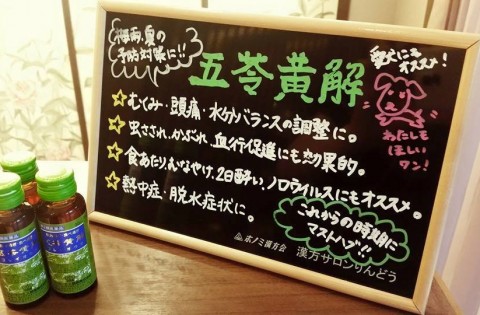 梅雨、夏の
予防対策に!!
五苓黄解
愛犬にも
オススメ!
わたしも
ほしい
ワン!
☆むくみ・頭痛・水分バランスの調整に。
☆虫さされ、かぶれ、血行促進にも効果的。
☆食あたり、むなやけ、2日酔い、ノロウイルスにもオススメ。
☆熱中症・脱水症状に。
これからの時期に
マストハブ!!
ホノミ漢方会 漢方サロンりんどう